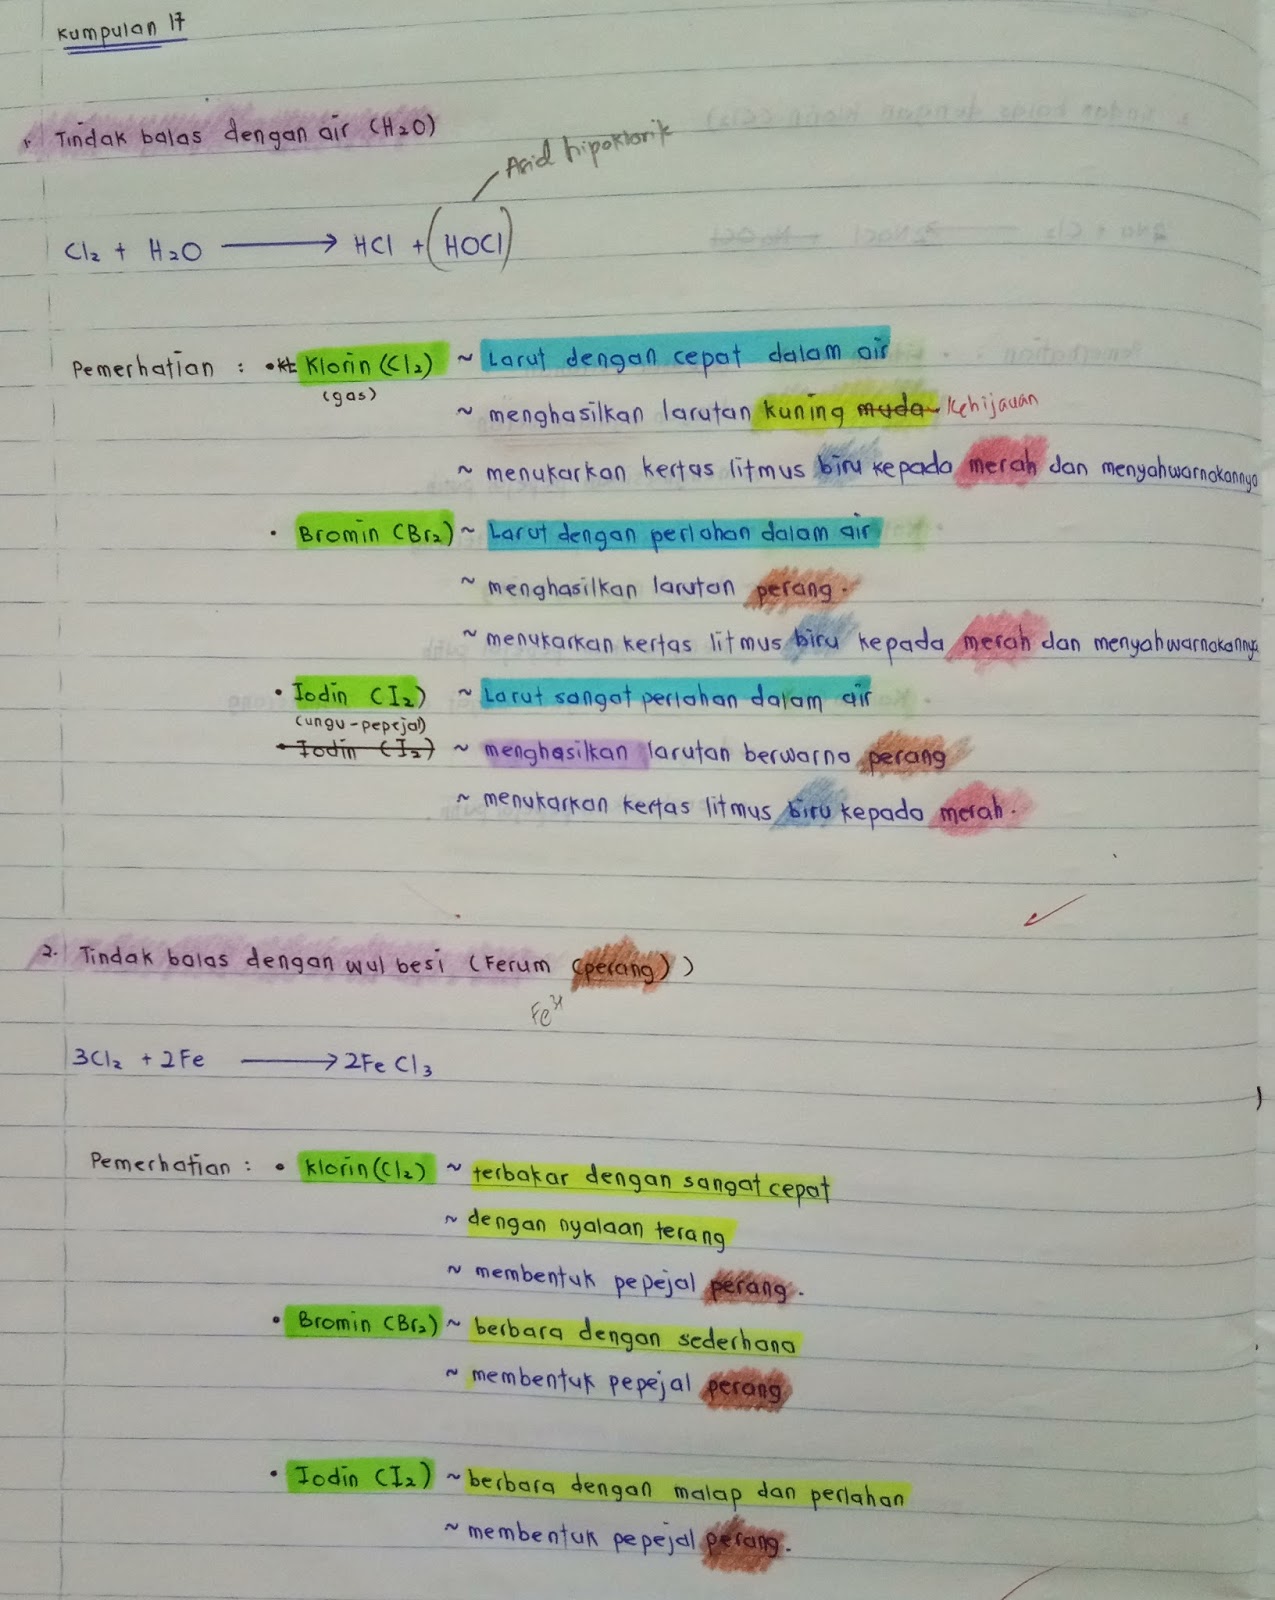 Kumpulan 17
1. Tindak balas dengan air (H2O)
Asid hipoklorik
Cl2 + H2O ⟶ HCl + (HOCl)
Pemerhatian : • Klorin (Cl2) ~ Larut dengan cepat dalam air
(gas)
~ menghasilkan larutan kuning muda kehijauan
~ menukarkan kertas litmus biru kepada merah dan menyahwarnakannya
• Bromin (Br2) ~ Larut dengan perlahan dalam air
~ menghasilkan larutan perang.
~ menukarkan kertas litmus biru kepada merah dan menyahwarnakannya
• Iodin (I2) ~ Larut sangat perlahan dalam air
(ungu-pepejal)
• Iodin (I2) ~ menghasilkan larutan berwarna perang
~ menukarkan kertas litmus biru kepada merah.
2. Tindak balas dengan wul besi (Ferum (perang))
Fe3+
3Cl2 + 2Fe ⟶ 2FeCl3
Pemerhatian : • Klorin (Cl2) ~ terbakar dengan sangat cepat
~ dengan nyalaan terang
~ membentuk pepejal perang.
• Bromin (Br2) ~ berbara dengan sederhana
~ membentuk pepejal perang
• Iodin (I2) ~ berbara dengan malap dan perlahan
~ membentuk pepejal perang.